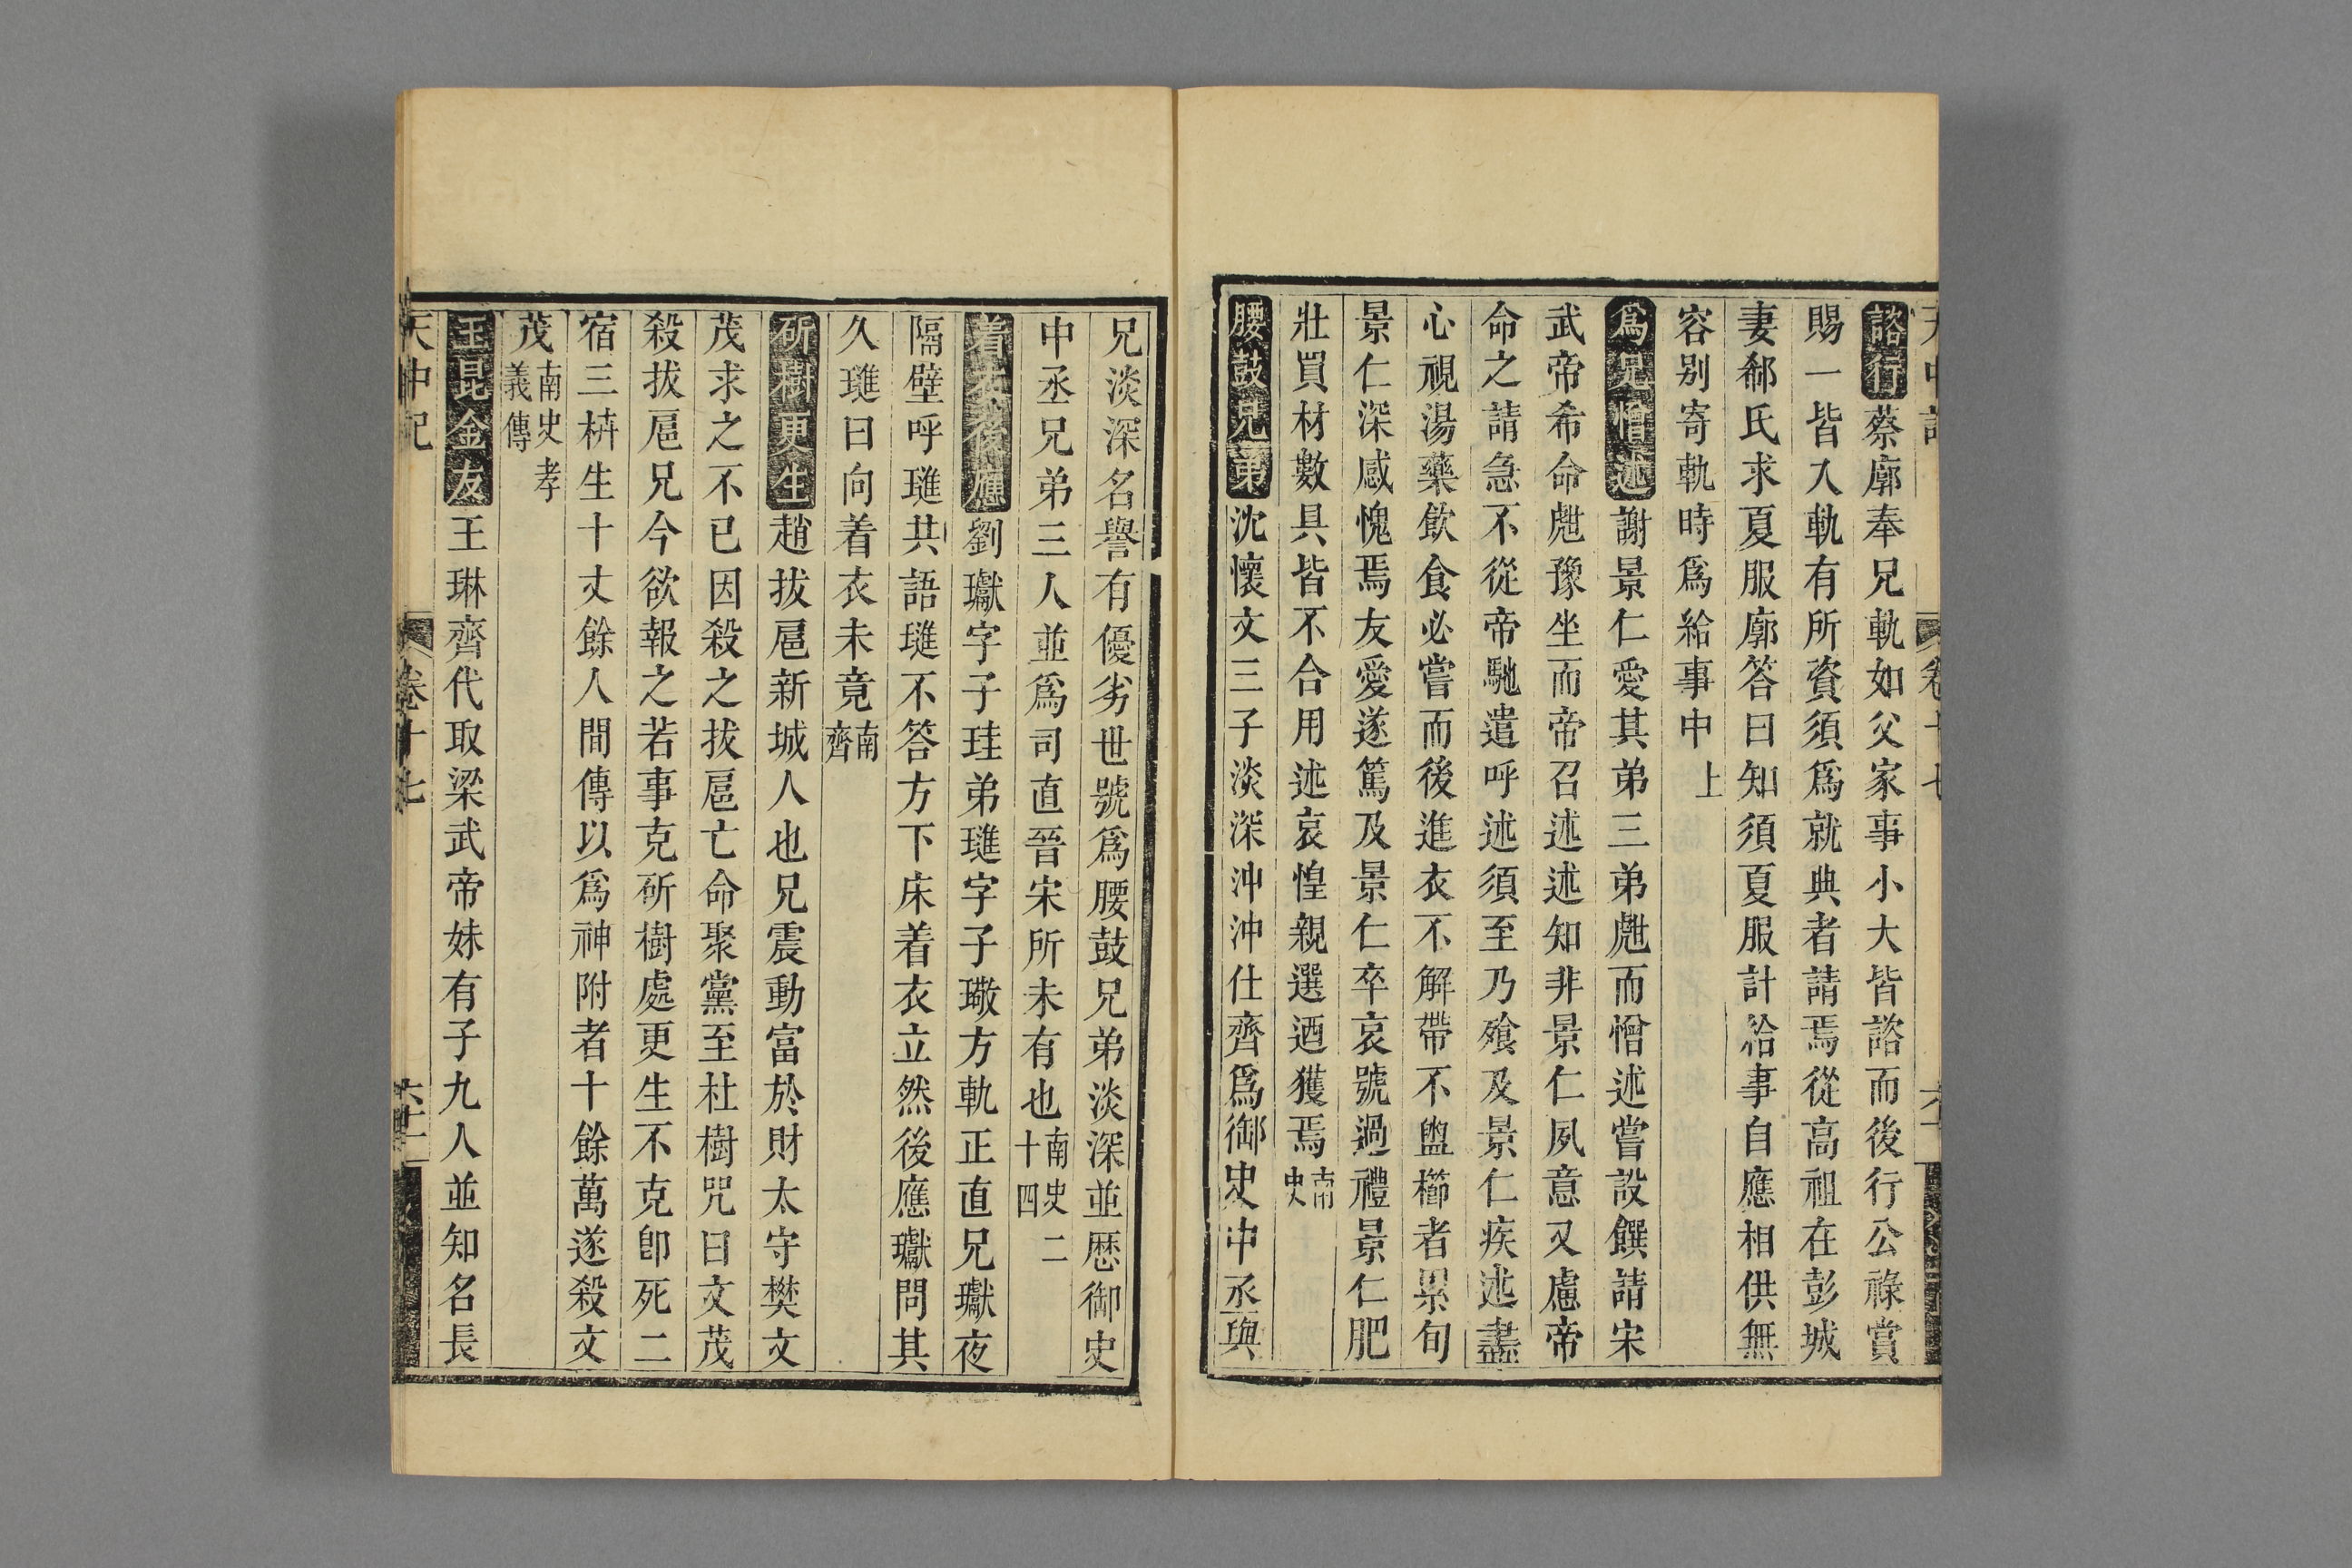 諮行蔡廓奉兄軌如父家事小大皆諮而後行公祿賞
賜一皆入軌有所資須爲就典者請焉從高祖在彭城
妻郗氏求夏服廓答曰知須夏服計給事自應相供無
容别寄軌時爲給事中上
爲兄憎述謝景仁愛其弟三弟甝而憎述嘗設饌請宋
武帝希命甝豫坐而帝召述述知非景仁夙意又慮帝
命之請急不從帝馳遣呼述須至乃飱及景仁疾述盡
心視湯藥飲食必嘗而後進衣不解帶不盥櫛者累旬
景仁深感愧焉友愛遂篤及景仁卒哀號過禮景仁肥
壯買材數具皆不合用述哀惶親選迺獲焉南史
腰鼓兄弟沈懷文三子淡深沖沖仕齊爲御史中丞與
兄淡深名譽有優劣世號爲腰鼓兄弟淡深並歷御史
中丞兄弟三人並爲司直晉宋所未有也南史二十四
着衣後應劉瓛字子珪弟璡字子璥方軌正直兄瓛夜
隔壁呼璡共語璡不答方下床着衣立然後應瓛問其
久璡曰向着衣未竟南齊
斫樹更生趙拔扈新城人也兄震動富於財太守樊文
茂求之不已因殺之拔扈亡命聚黨至杜樹咒曰文茂
殺拔扈兄今欲報之若事克斫樹處更生不克卽死二
宿三枿生十丈餘人間傳以爲神附者十餘萬遂殺文
茂南史孝義傳
王昆金友王琳齊代取梁武帝妹有子九人並知名長
天中記 卷十七